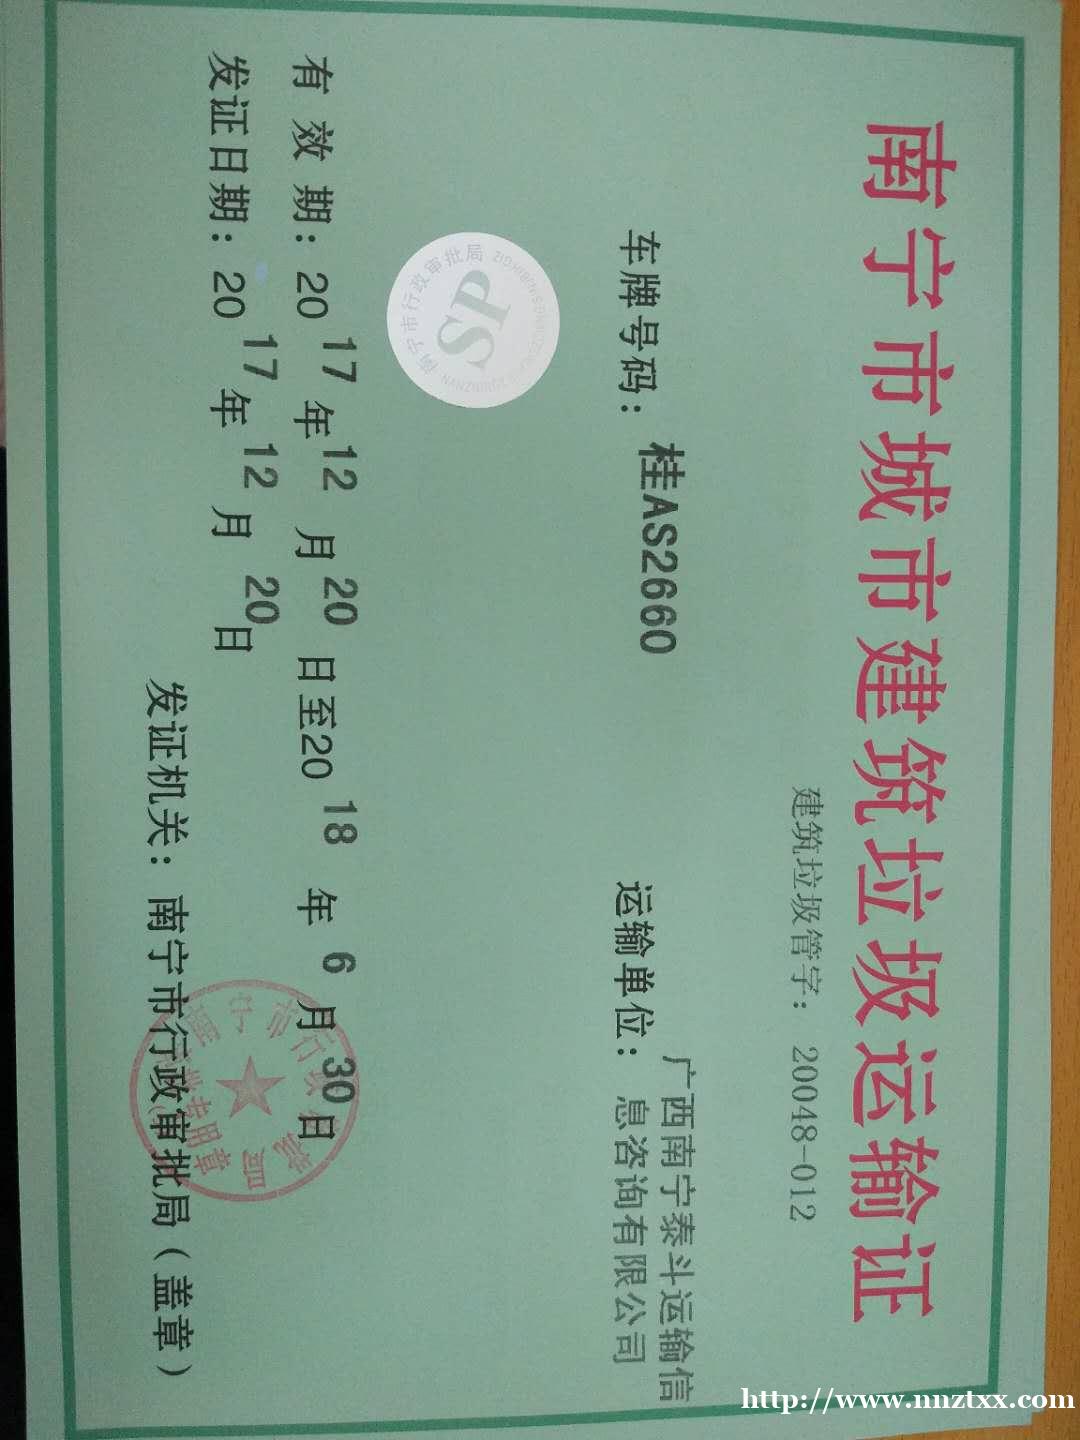 南宁市城市建筑垃圾运输证
建筑垃圾管字：20048-012
车牌号码：桂AS2660
运输单位：广西南宁泰斗运输信
息咨询有限公司
南宁市行政审批局
SP
有效期：2017年12月20日至2018年6月30日
发证日期：2017年12月20日
发证机关：南宁市行政审批局（盖章）
南宁市行政审批局
专用章
http://www.nnztxx.com